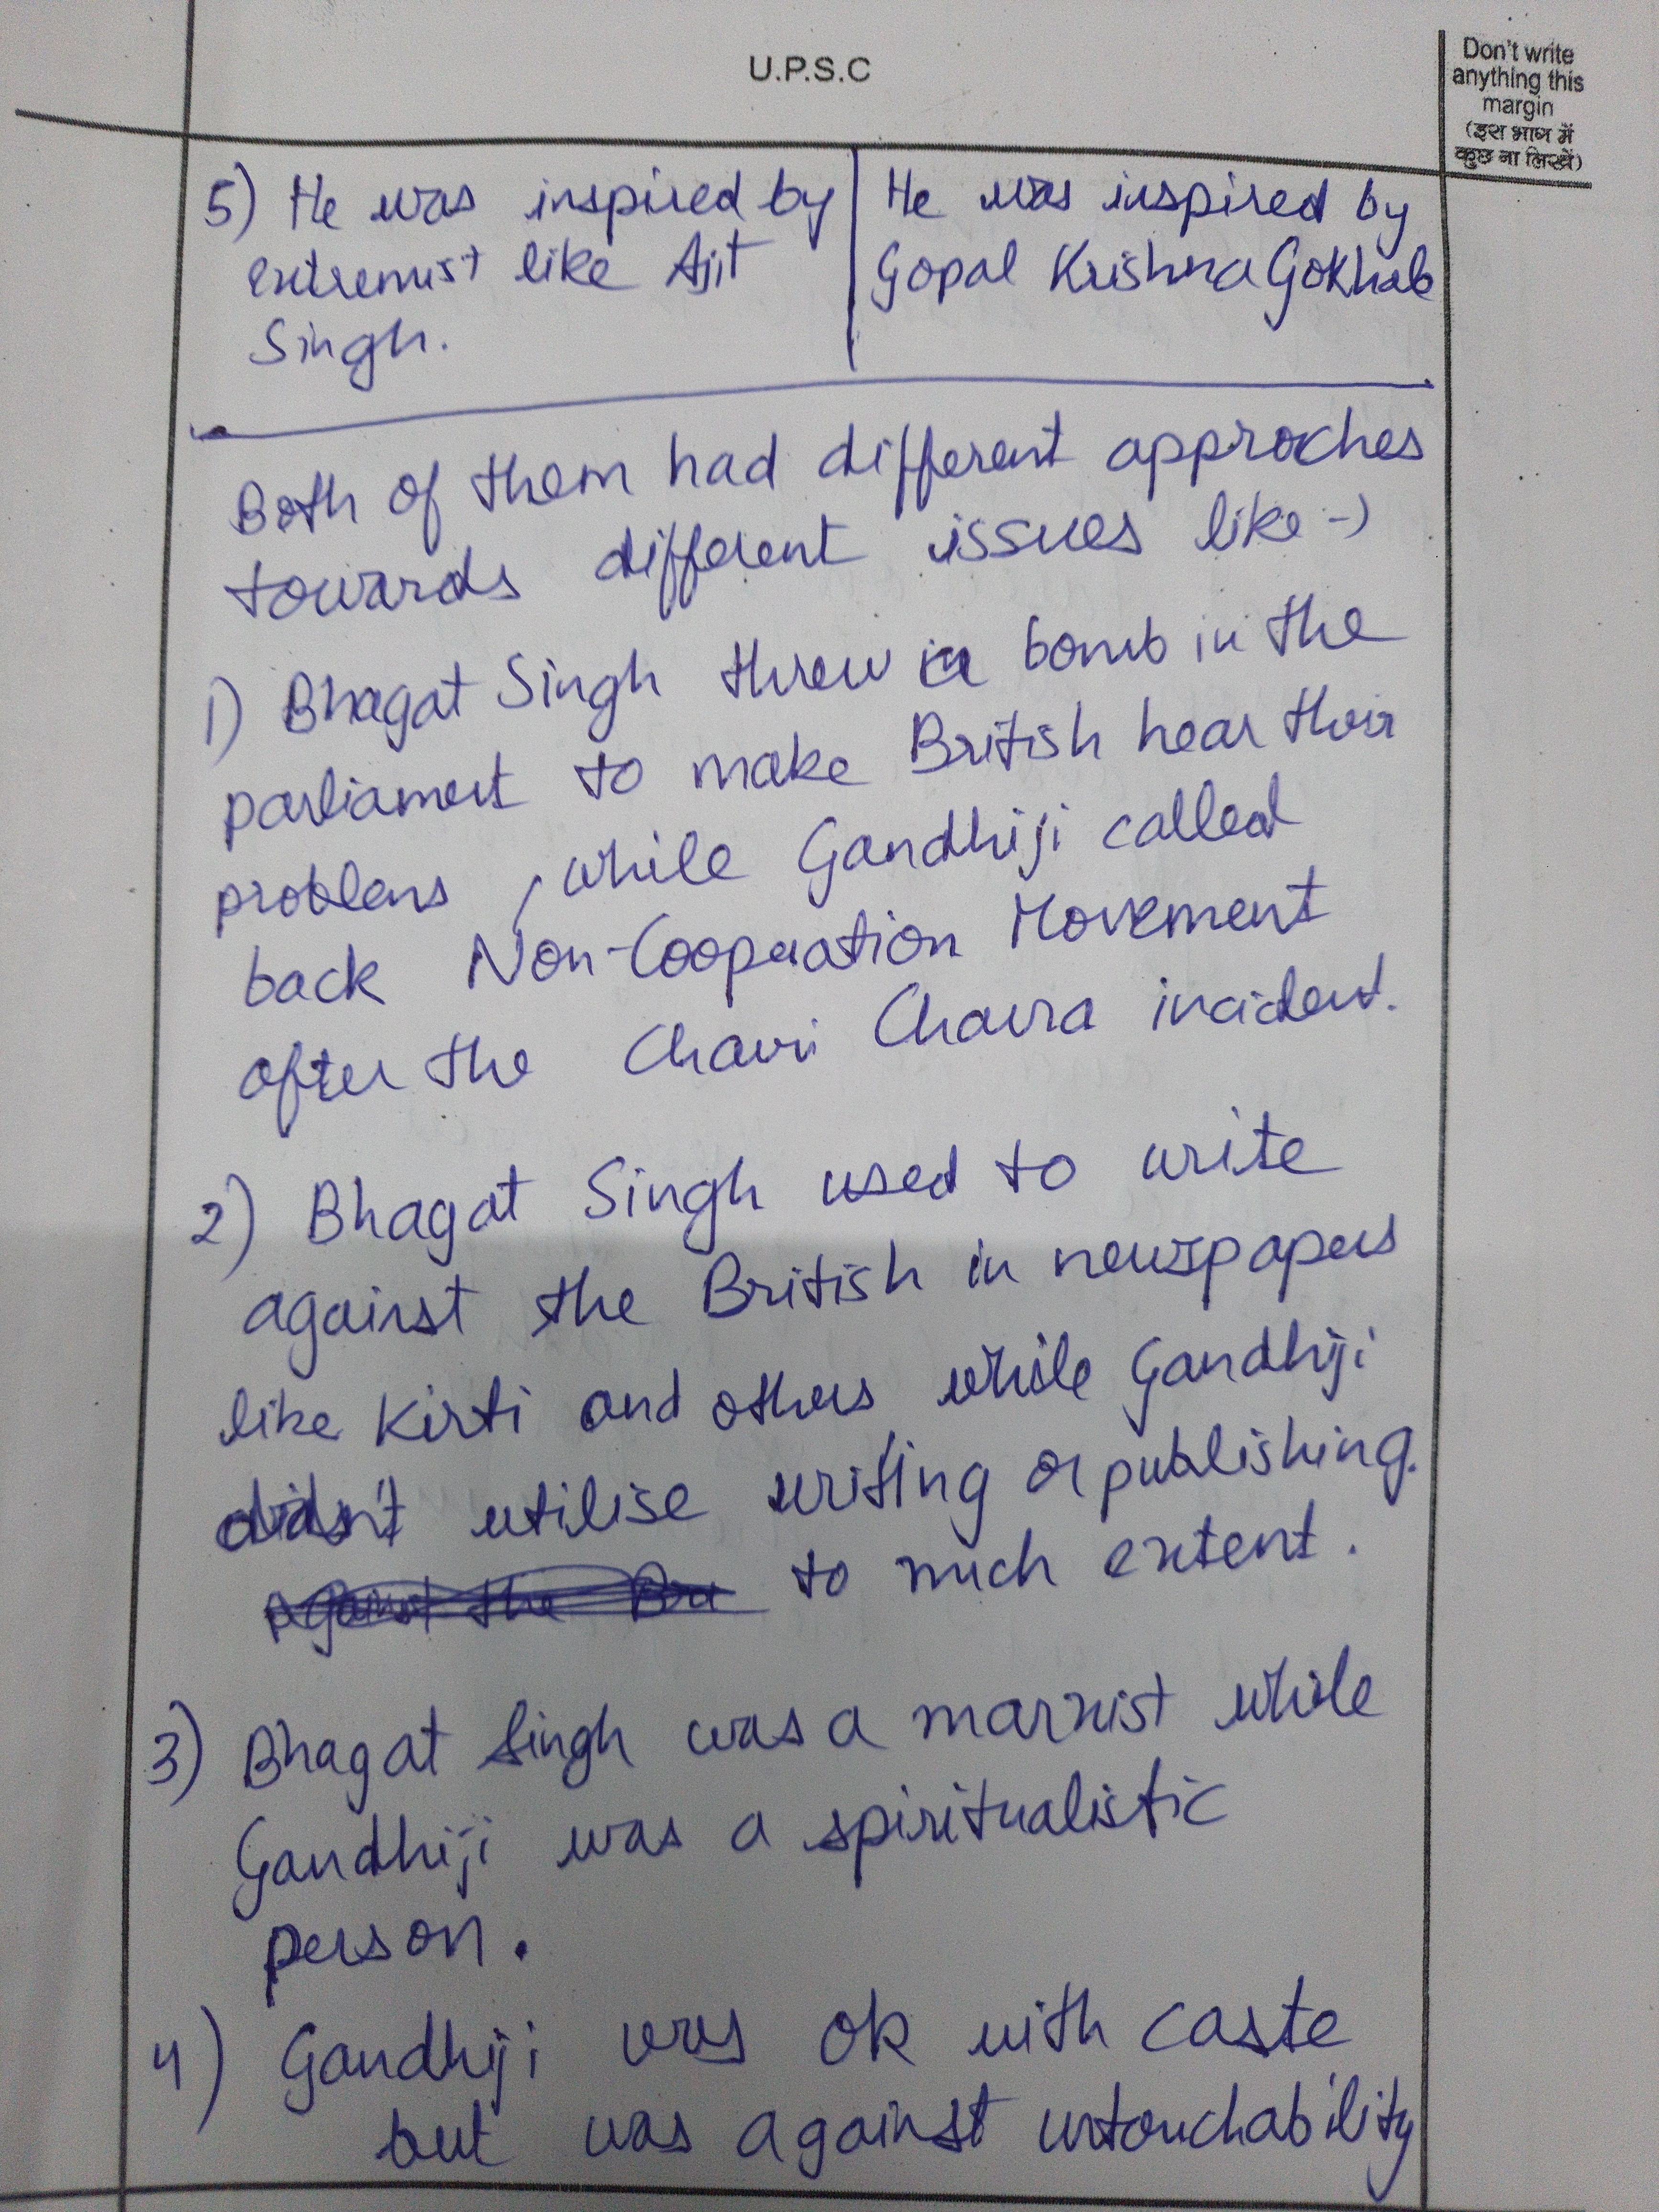 U.P.S.C
Don't write
anything this
margin
(इस भाग में
कुछ ना लिखें)
5) He was inspired by | He was inspired by
extremist like Ajit | Gopal Krishna Gokhale
Singh.
Both of them had different approches
towards different issues like -)
1) Bhagat Singh threw a bomb in the
parliament to make British hear their
problems, while Gandhiji called
back Non-Cooperation Movement
after the Chauri Chaura incident.
2) Bhagat Singh used to write
against the British in newspapers
like Kirti and others, while Gandhiji
didn't utilise writing or publishing.
against the Bri to much extent.
3) Bhagat Singh was a marxist while
Gandhiji was a spiritualistic
person.
4) Gandhiji was ok with caste
but was against untouchability